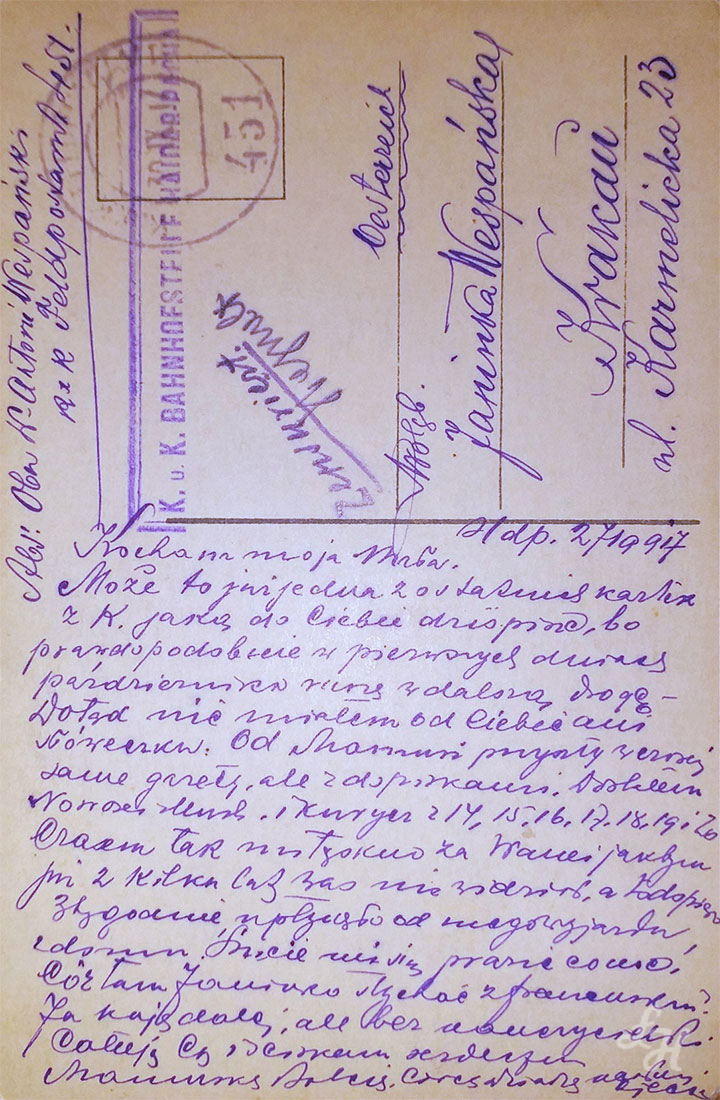 Abs: Obn Dr Antoni Wespański
K u K Feldpostamt 451.
451
K. u. K. BAHNHOFSTEIFE HAIDAR-PASCHA
Zensuriert
Oesterreich
Wohlgb.
Janinka Wespańska
Krakau
ul. Karmelicka 23
Hdp. 27/9 1917
Kochana moja
Może to już jedna z ostatnich kartek
z K. jaką do Ciebie dziś piszę, bo
prawdopodobnie w pierwszych dniach
października ruszę w dalszą drogę –
Dotąd nic miałem od Ciebie ani
słóweczka. Od Mamusi przyszły wczoraj
same gazety, ale z dopiskami. Dostałem
Nowości i Kuryer z 14, 15, 16, 17, 18, 19 i 20
Czasem tak mi tęskno za Wami jakbym
już z kilka lat was nie widział, a to dopiero
3 tygodnie upłynęło od mego wyjazdu
z domu. Śnicie mi się prawie co noc.
Cóż tam Janinko słychać z francuskim?
Ja kuję dalej, ale bez nauczycielki
Całuję Cię i ściskam serdecznie
Mamusię